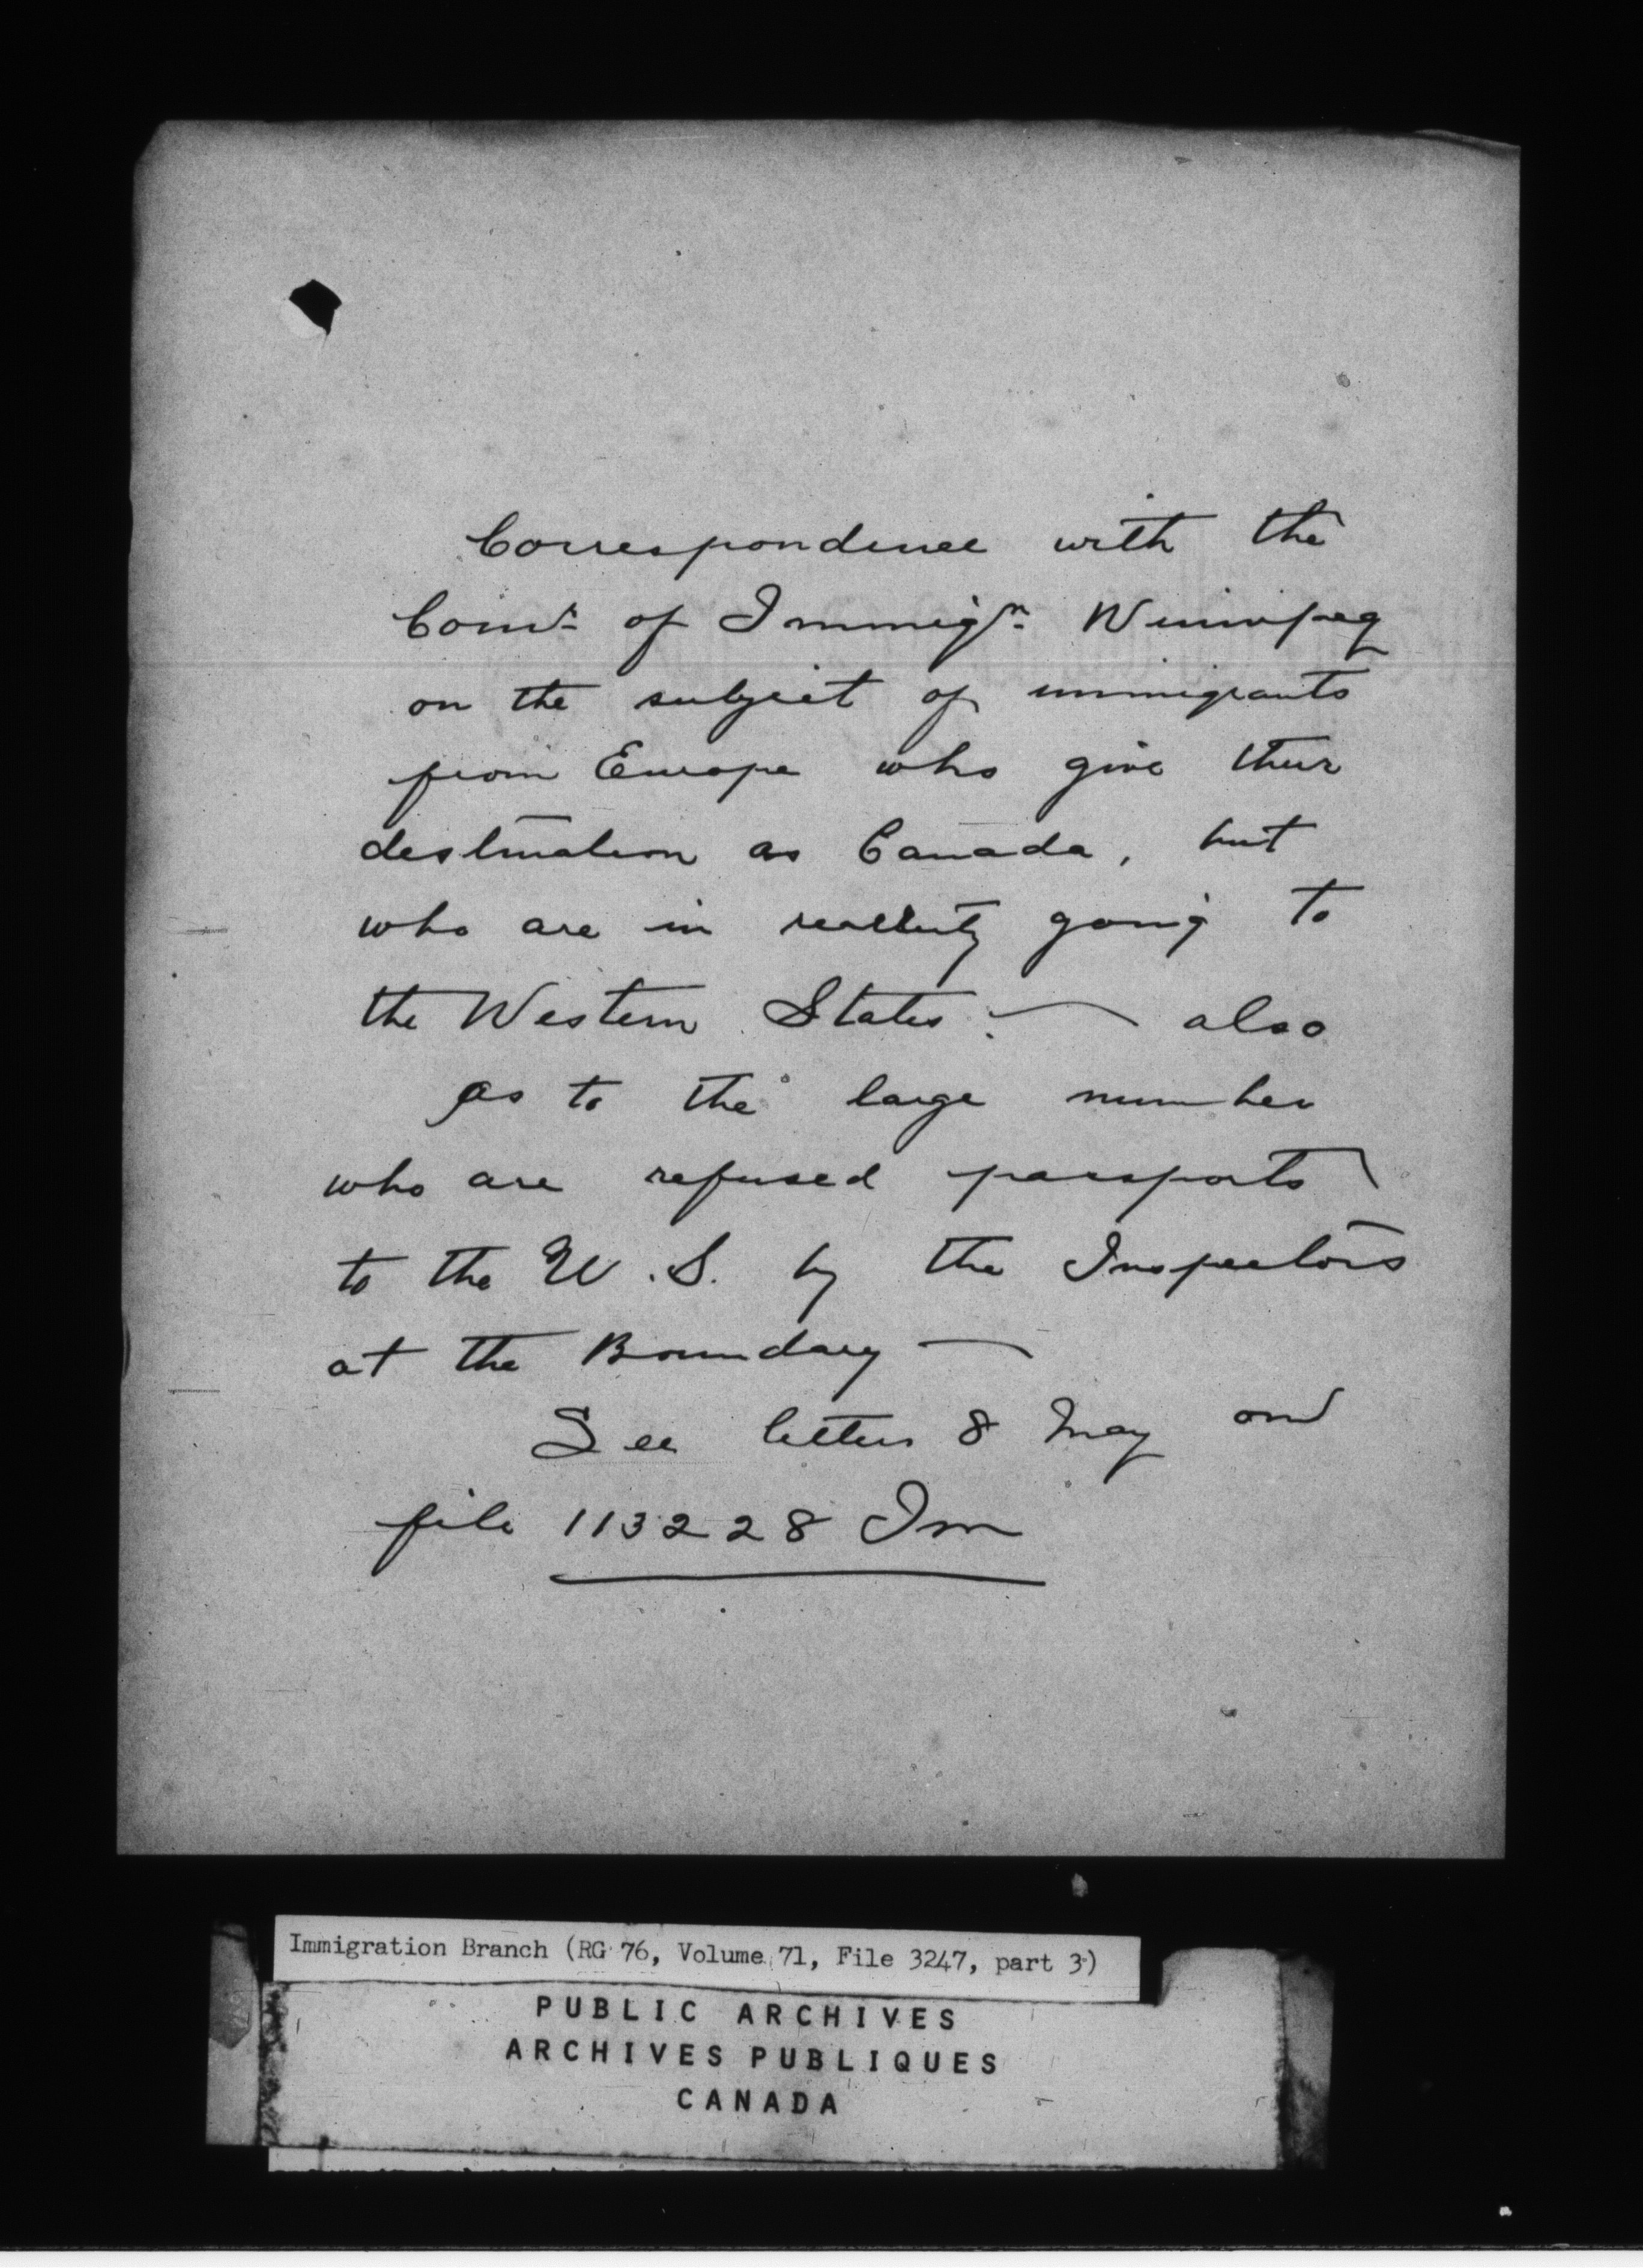 Correspondence with the
Comr. of Immign. Winnipeg
on the subject of immigrants
from Europe who give their
destination as Canada, but
who are in reality going to
the Western States :— also
as to the large number
who are refused passports
to the U.S. by the Inspectors
at the Boundary —
See letter 8 May and
file 113228 Im
Immigration Branch (RG 76, Volume 71, File 3247, part 3)
PUBLIC ARCHIVES
ARCHIVES PUBLIQUES
CANADA